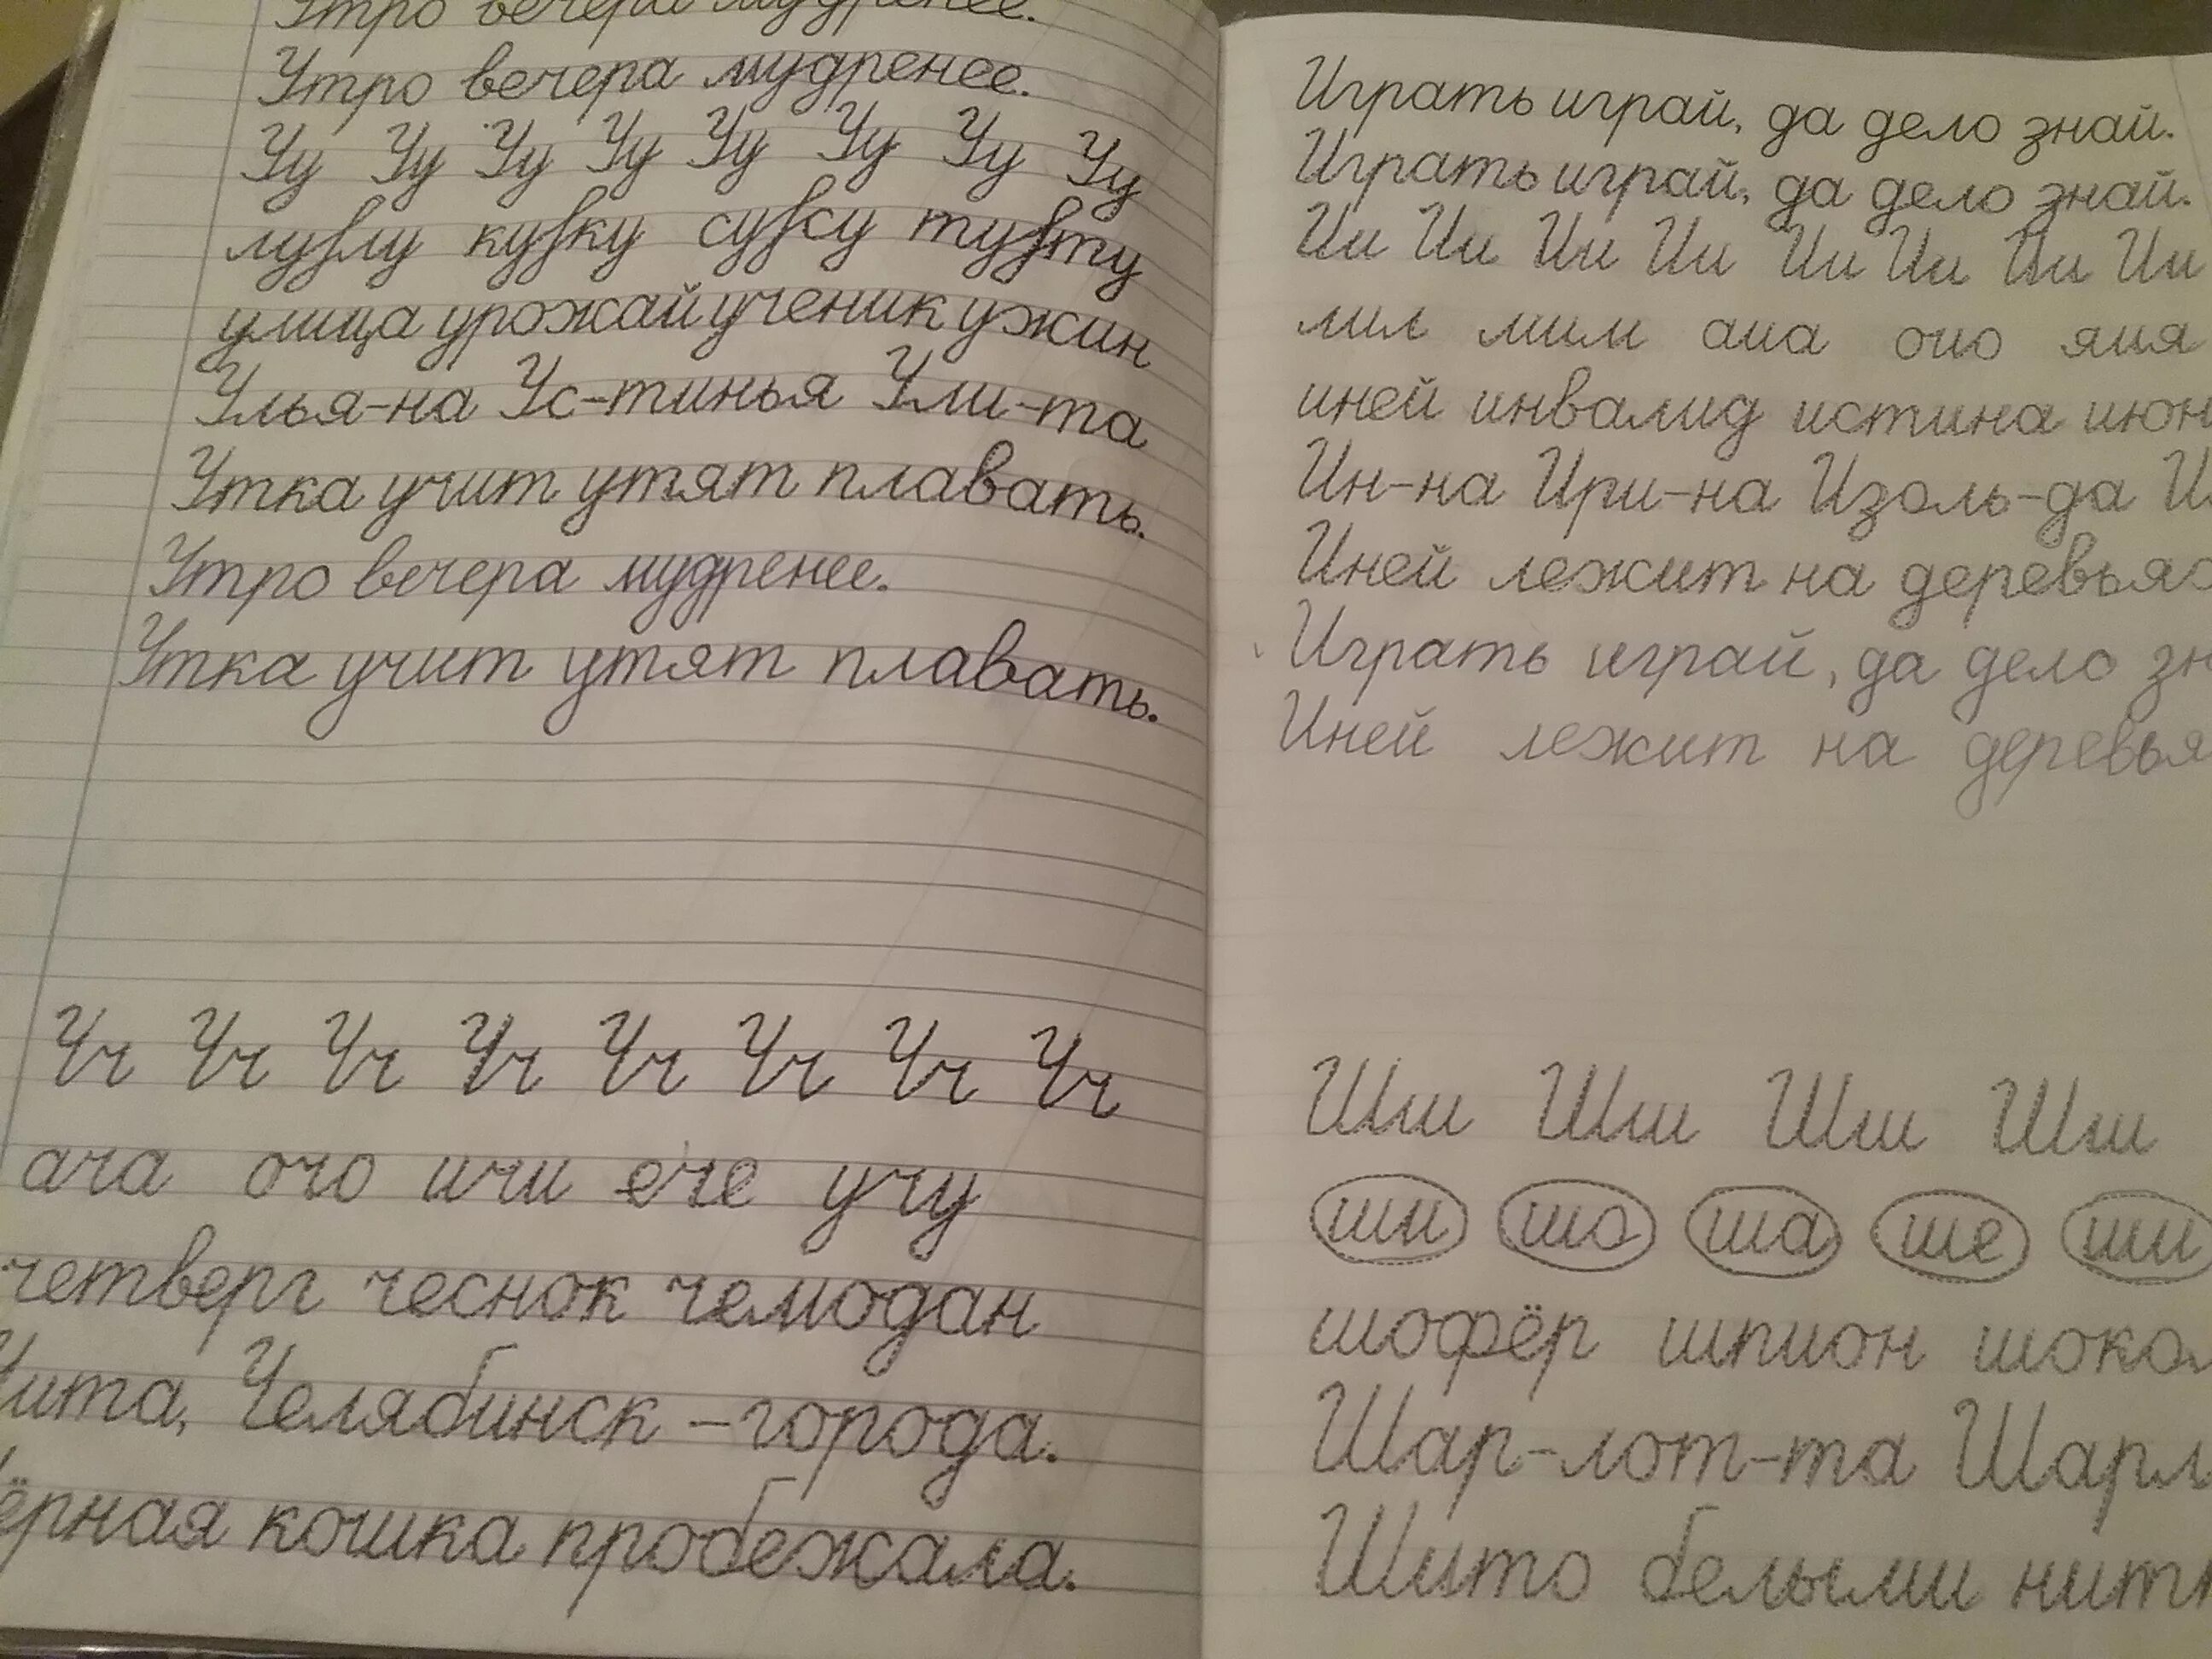 Утро вечера мудренее.
Утро вечера мудренее.
Уу Уу Уу Уу Уу Уу Уу Уу
лу лу ку ку су су ту ту
улица урожай ученик ужин
Улья-на Ус-тинья Ули-та
Утка учит утят плавать.
Утро вечера мудренее.
Утка учит утят плавать.
Чч Чч Чч Чч Чч Чч Чч Чч
ача очо ичи ече учу
четверг чеснок чемодан
Чита, Челябинск - города.
кошка пробежала.
Играть играй, да дело знай.
Играть играй, да дело знай.
Ии Ии Ии Ии Ии Ии Ии Ии
лил мим аиа оио яия
иней инвалид истина
Ин-на Ири-на Изоль-да
Иней лежит на деревьях
Играть играй, да дело
Иней лежит на
Шш Шш Шш Шш
ши шо ша ше ши
шофёр шпион
Шар-лот-та
Шито белыми